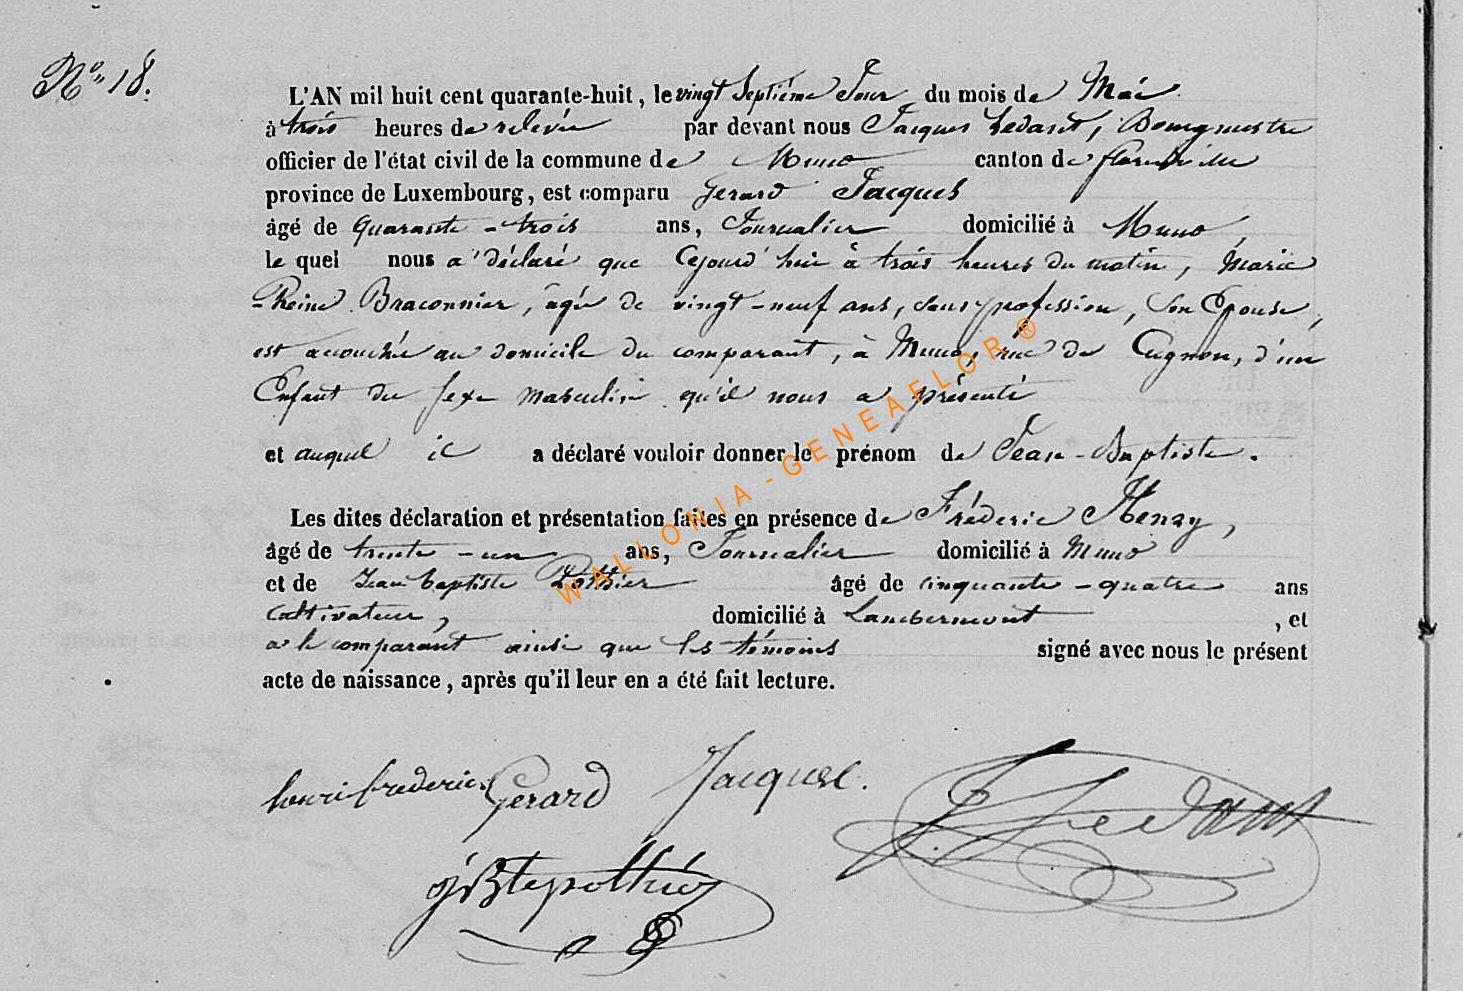 N° 18.
L'AN mil huit cent quarante-huit, le vingt Septième Jour du mois de Mai
à trois heures de relevée par devant nous Jacques Ledant, Bourgmestre
officier de l'état civil de la commune de Muno canton de florenville
province de Luxembourg, est comparu Gerard Jacques
âgé de quarante-trois ans, Journalier domicilié à Muno
le quel nous a déclaré que Cejourd'hui à trois heures du matin, Marie
-Reine Braconnier, âgée de vingt-neuf ans, sans profession, Son Epouse,
est accouchée au domicile du comparant, à Muno, rue de Cugnon, d'un
Enfant du sexe masculin qu'il nous a présenté
et auquel il a déclaré vouloir donner le prénom de Jean-Baptiste.
Les dites déclaration et présentation faites en présence de Fréderic Henry,
âgé de trente-un ans, Journalier domicilié à Muno
et de Jean baptiste Pothier âgé de cinquante-quatre ans
cultivateur, domicilié à Lambermont, et
a le comparant ainsi que les témoins signé avec nous le présent
acte de naissance, après qu'il leur en a été fait lecture.
henri frederic Gerard Jacques.
J Ledant
jBte pothier
WALLONIA - GENEAFLOR ®